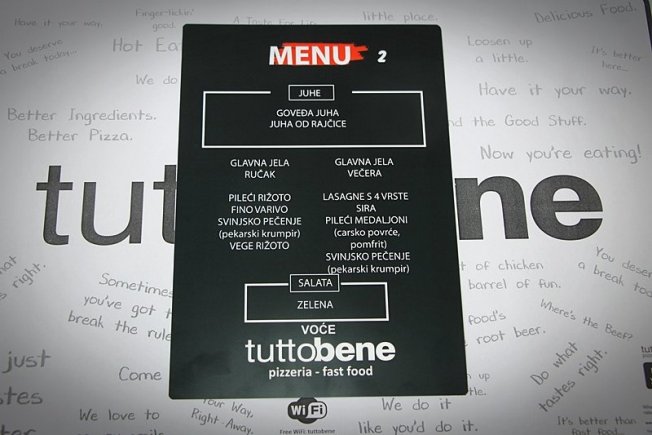 MENU 2
JUHE
GOVEĐA JUHA
JUHA OD RAJČICE
GLAVNA JELA
RUČAK
PILEĆI RIŽOTO
FINO VARIVO
SVINJSKO PEČENJE
(pekarski krumpir)
VEGE RIŽOTO
GLAVNA JELA
VEČERA
LASAGNE S 4 VRSTE
SIRA
PILEĆI MEDALJONI
(carsko povrće,
pomfrit)
SVINJSKO PEČENJE
(pekarski krumpir)
SALATA
ZELENA
VOĆE
tuttobene
pizzeria - fast food
Finger-lickin'
good.
A Taste For Life
little place.
Delicious Food.
You deserve
a break today...
Hot Ea
Loosen up
a little.
It's better
here...
We do
Have it your way.
Better Ingredients.
Better Pizza.
and the Good Stuff.
Now you're eating!
tutt
ne
Sometimes
you've got t
break the rule
t of chicken
barrel of fun.
You deser
a break tod
food's
root beer.
Where's the Beef?
tastes right.
just
tes
re
Come
Do what
tastes right.
We love to
Your Way,
Right Away.
WiFi
Free WiFi: tuttobene
We do it
like you'd do it.
It's better than
fast food...